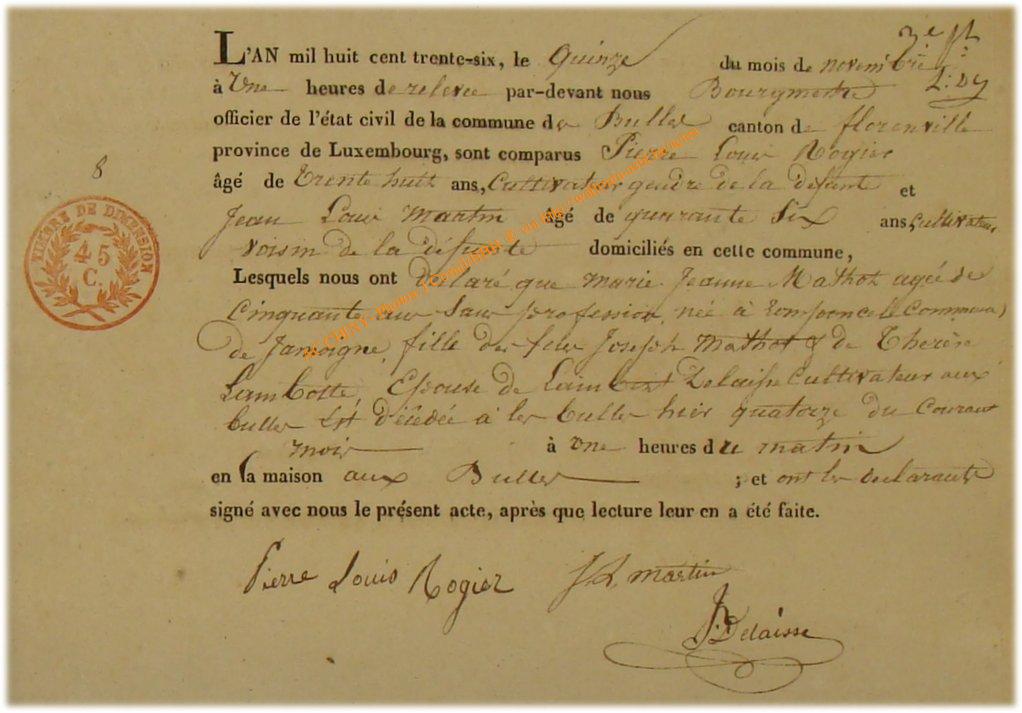 L'AN mil huit cent trente-six, le quinze du mois de novembre
à une heures de relevée par-devant nous Bourgmestre
officier de l'état civil de la commune des Bulles canton de florenville
province de Luxembourg, sont comparus Pierre Louis Rogier
âgé de trente huit ans, Cultivateur gendre de la défunte et
Jean Louis Martin âgé de quarante Six ans, Cultivateur
voisin de la défunte domiciliés en cette commune,
Lesquels nous ont déclaré que marie Jeanne Mathot agée de
Cinquante ans Sans profession, née à romponcelle Commune
de Jamoigne, fille des feus Joseph Mathot & de Therèse
Lambotte, Epouse de Lambert Delaisse Cultivateur aux
bulles Est décédée à les bulles hier quatorze du Courant
mois à une heures du matin
en sa maison aux Bulles ; et ont les declarants
signé avec nous le présent acte, après que lecture leur en a été faite.
Pierre Louis Rogier J L martin
Delaisse
8
TIMBRE DE DIMENSION
45
C.